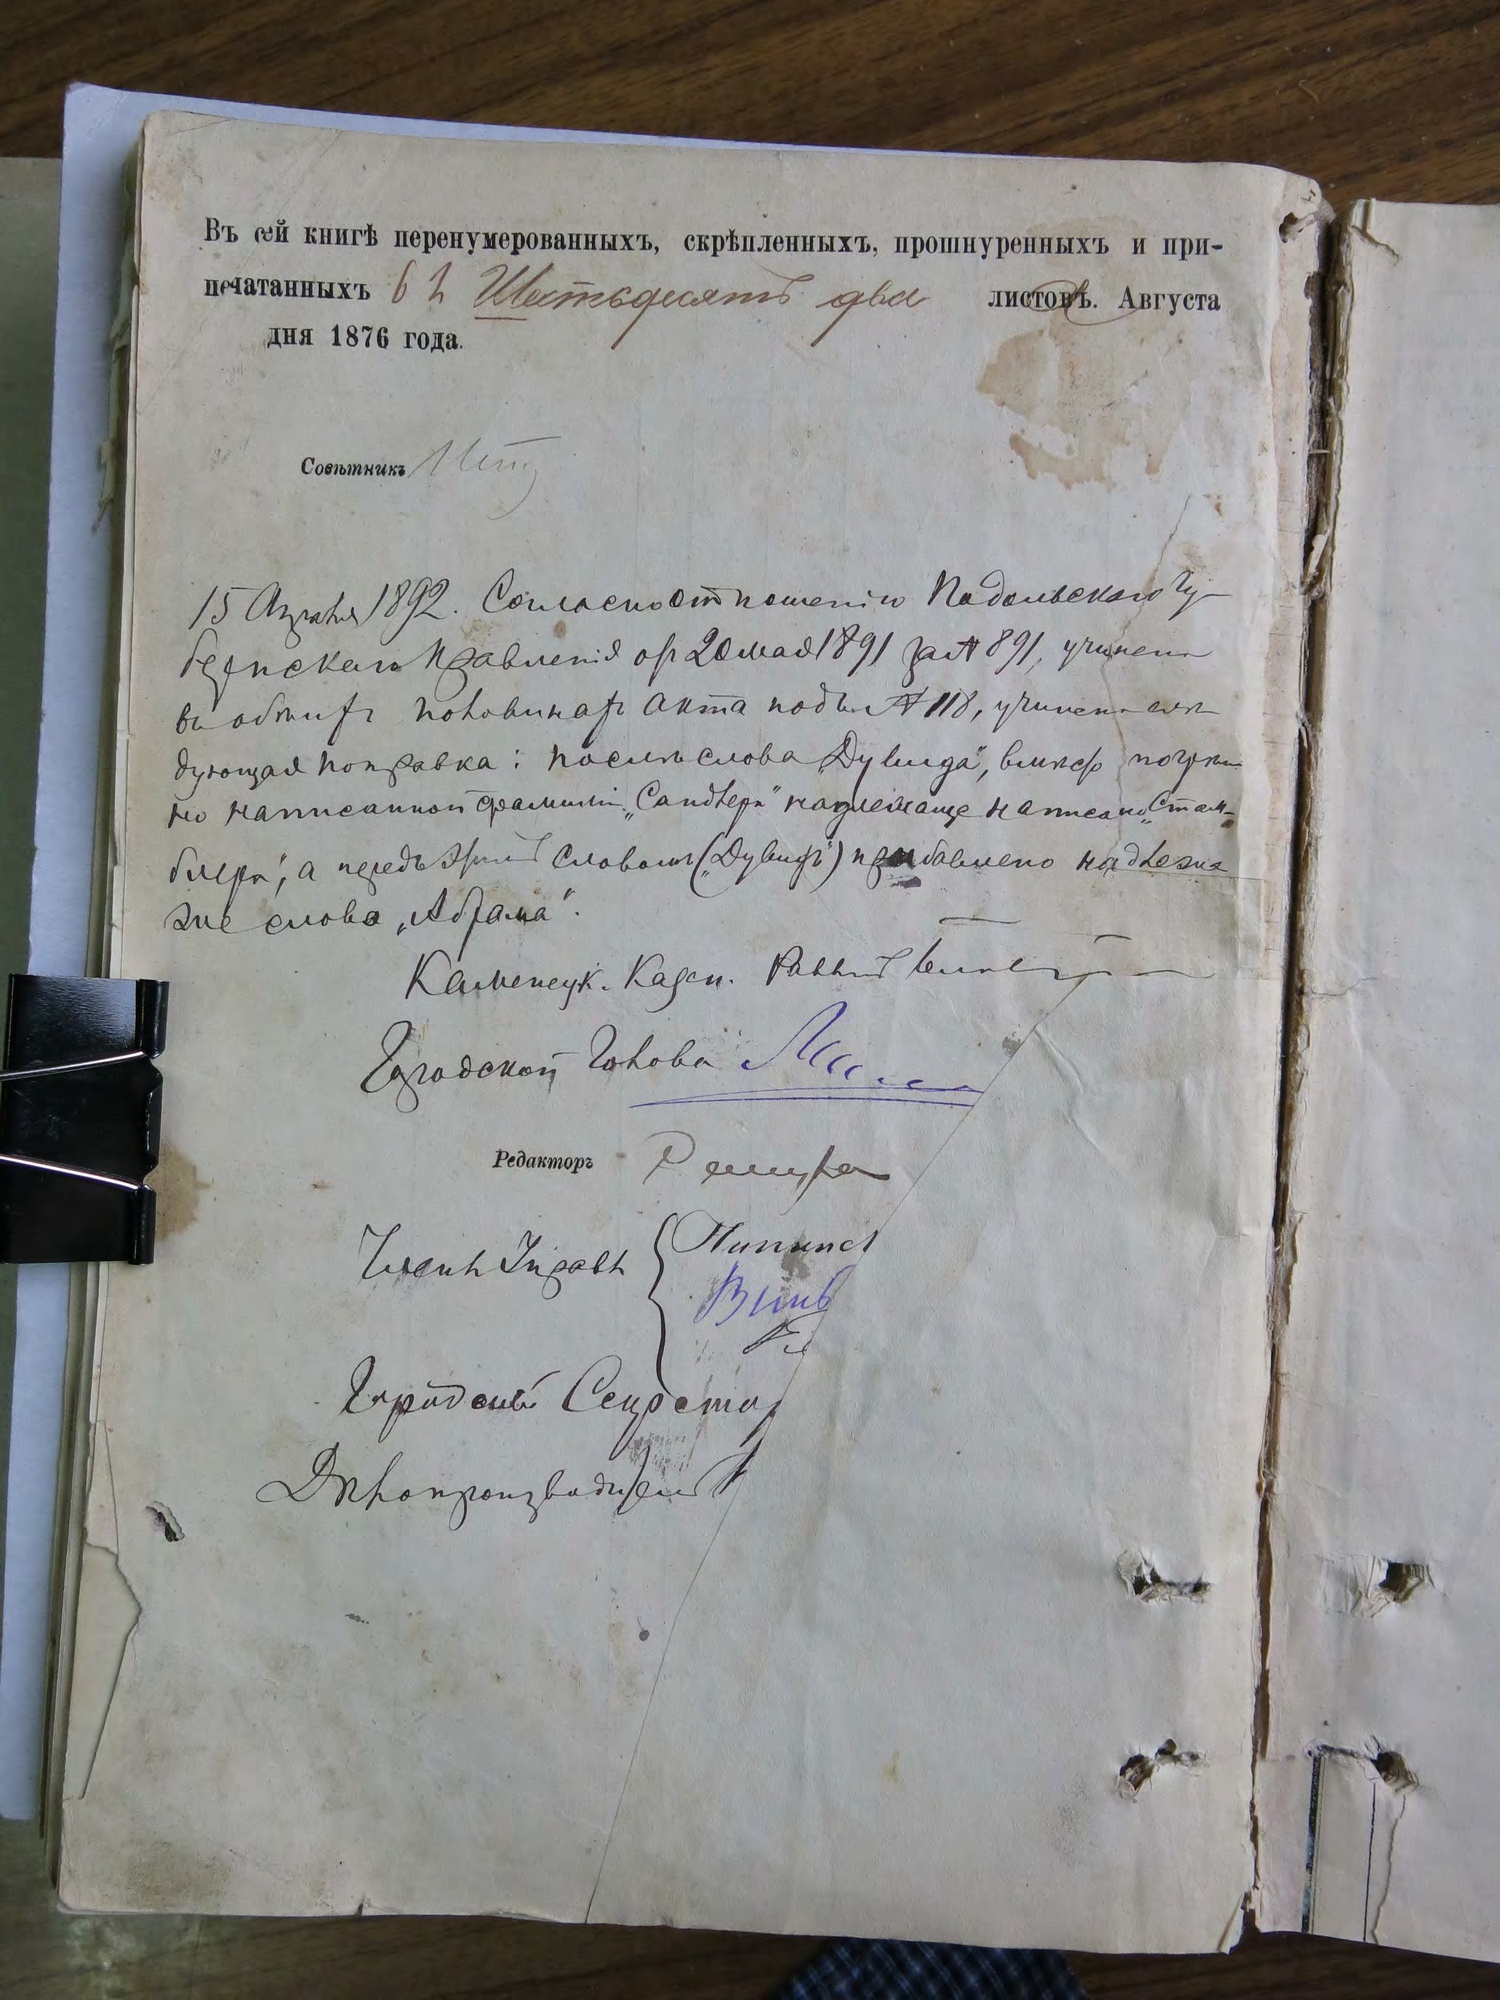 Въ сей книгѣ перенумерованныхъ, скрѣпленныхъ, прошнуренныхъ и при-
печатанныхъ 62 Шестьдесятъ два листовъ. Августа
дня 1876 года.
Совѣтникъ
15 Апрѣля 1892. Согласно отношенію Подольскаго Гу-
бернскаго Правленія отъ 20 мая 1891 за № 891, учинена
въ обѣихъ половинахъ акта подъ № 118, учинена слѣ
дующая поправка: послѣ слова „Дувида", вмѣсто погрѣш
но написанной фамиліи „Сандлеръ" надлежаще написано „Стам-
блеръ", а передъ этимъ словомъ („Дувидъ") прибавлено надлежа
щее слово „Абрама".
Каменецк. Казен. Раввинъ
Городской Голова
Редакторъ
Члены Управы
Городской Секретар
Дѣлопроизводитель